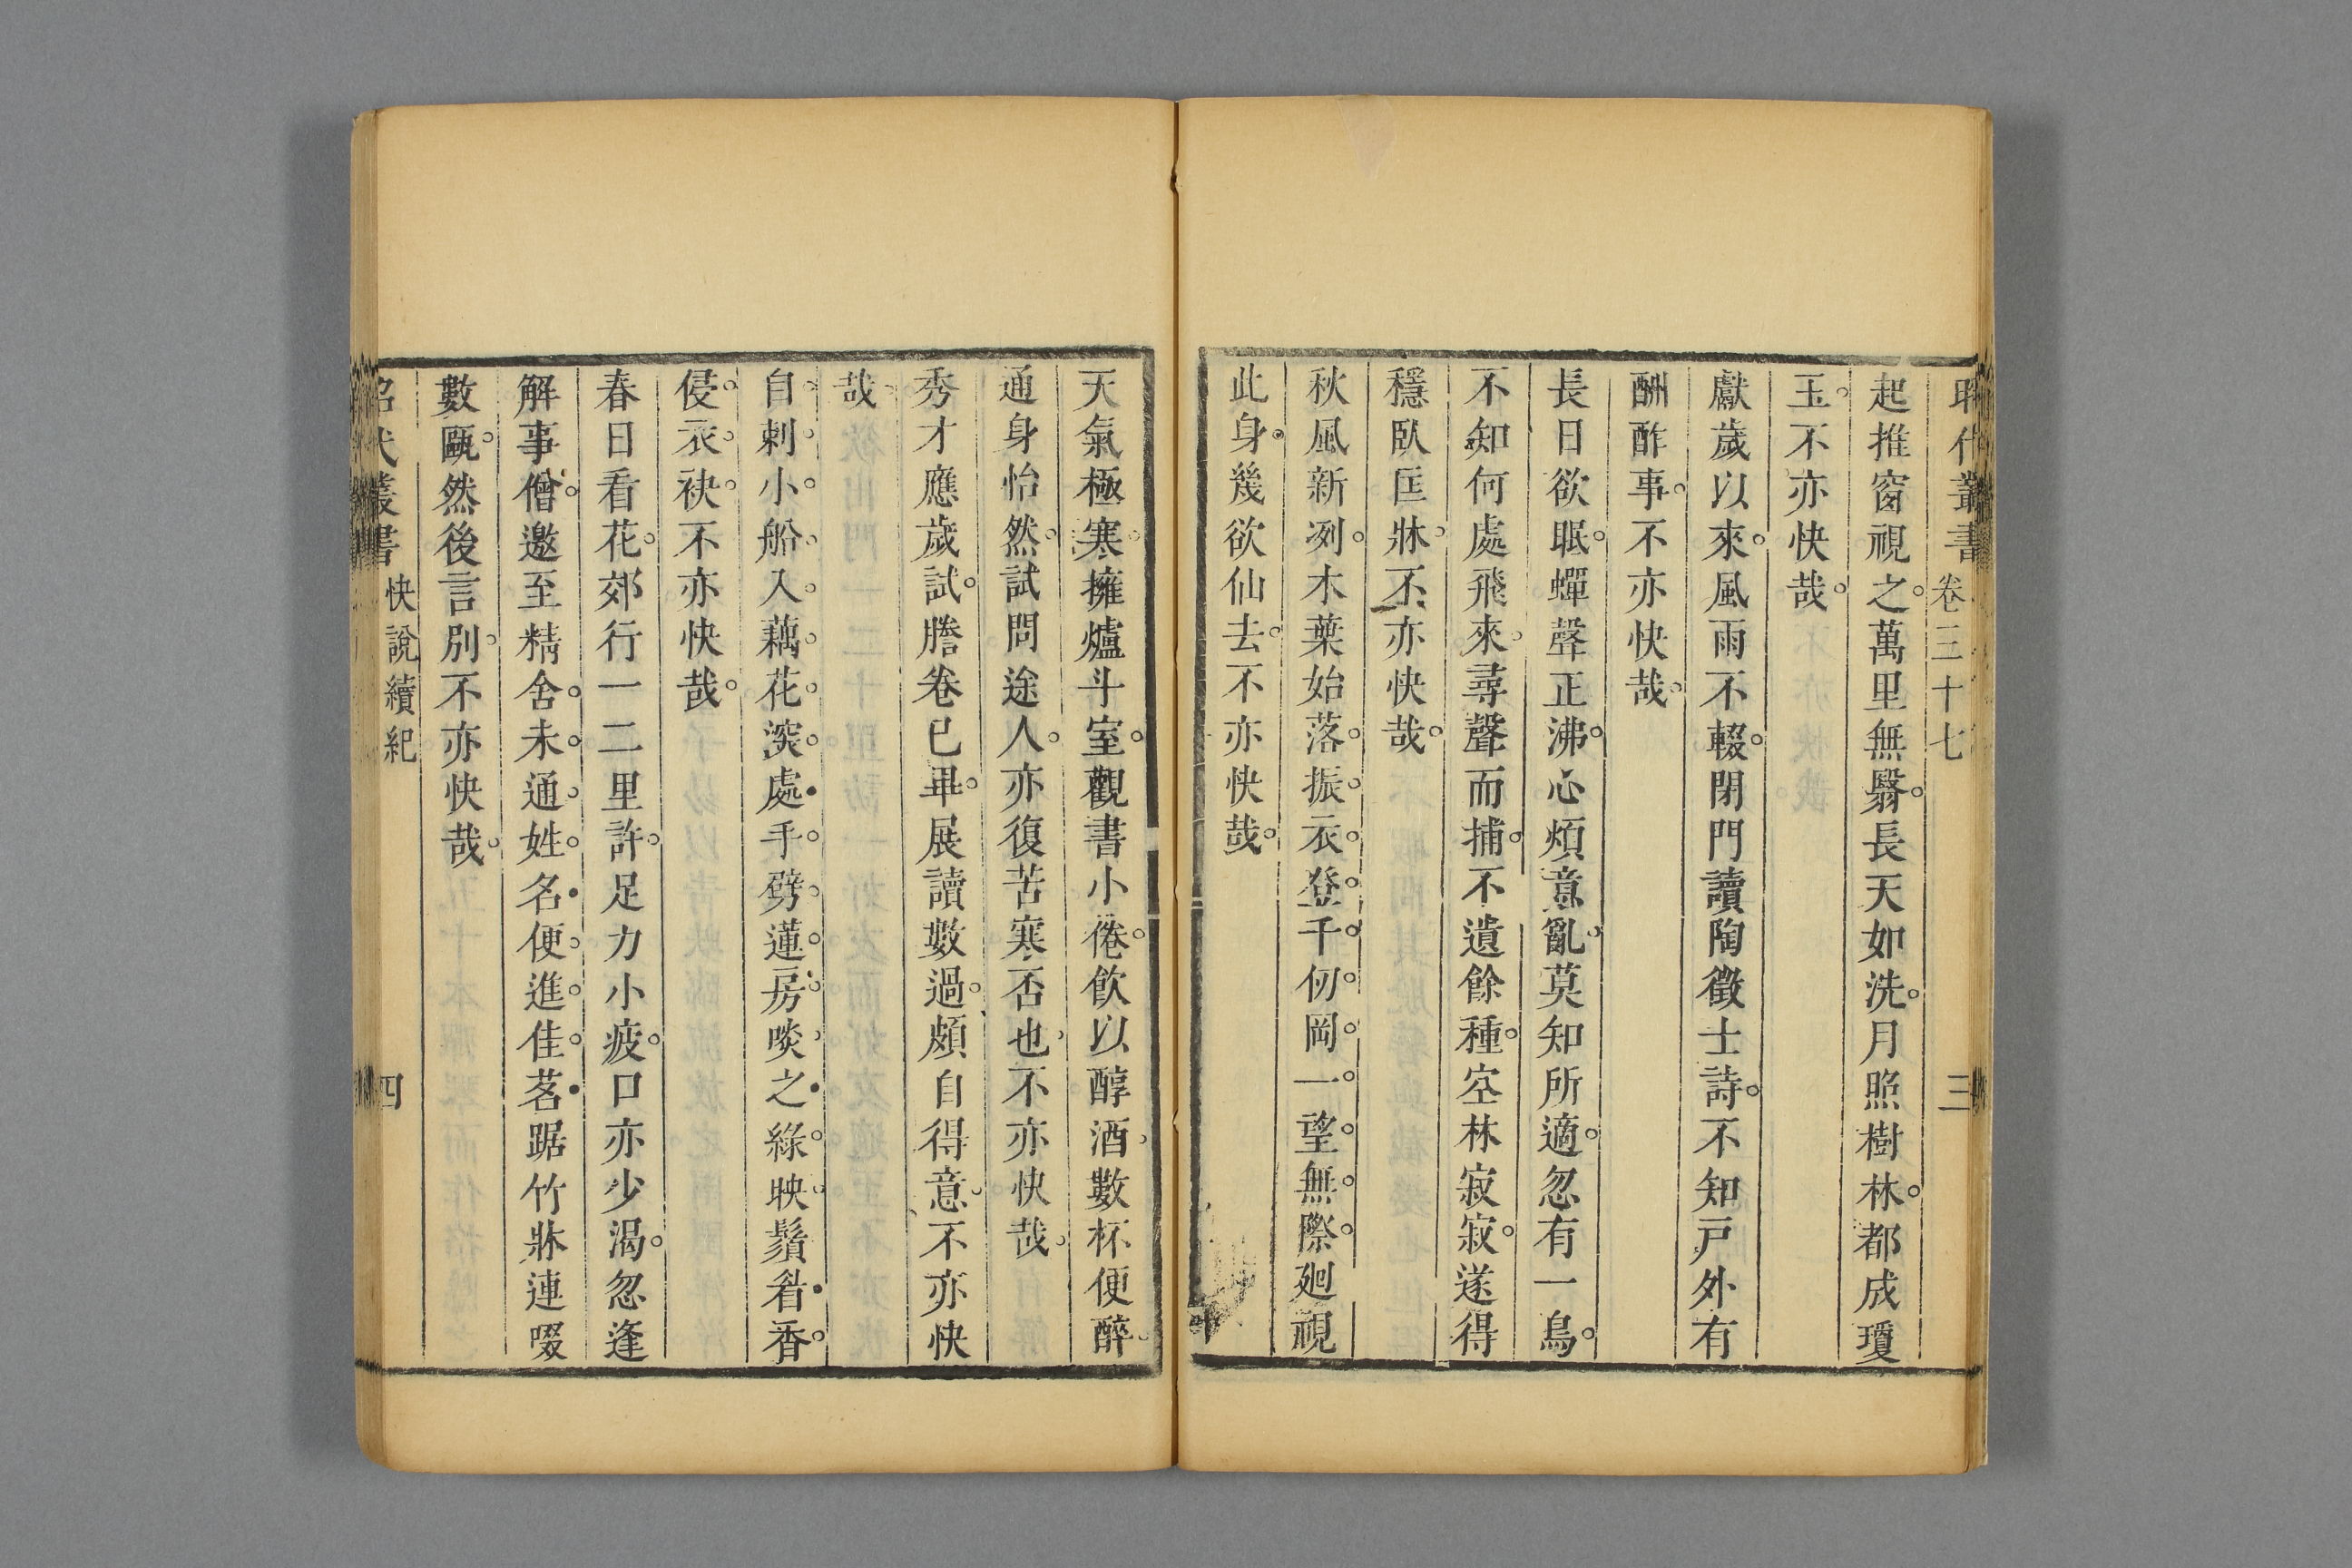 昭代叢書 卷三十七 三
起推窗視之。萬里無翳。長天如洗。月照樹林。都成瓊
玉。不亦快哉。
獻歲以來。風雨不輟。閉門讀陶徵士詩。不知戸外有
酬酢事。不亦快哉。
長日欲眠。蟬聲正沸。心煩意亂。莫知所適。忽有一鳥。
不知何處飛來。尋聲而捕。不遺餘種。空林寂寂。遂得
穩臥匡牀。不亦快哉。
秋風新冽。木葉始落。振衣登千仞岡。一望無際。廻視
此身。幾欲仙去。不亦快哉。
天氣極寒。擁爐斗室。觀書小倦。飲以醇酒。數杯便醉。
通身怡然。試問途人。亦復苦寒否也。不亦快哉。
秀才應歲試。謄卷已畢。展讀數過。頗自得意。不亦快
哉。
自刺小船。入藕花深處。手劈蓮房。啖之。綠映鬚眉。香
侵衣袂。不亦快哉。
春日看花。郊行一二里許。足力小疲。口亦少渴。忽逢
解事僧。邀至精舍。未通姓名。便進佳茗。踞竹牀連啜
數甌。然後言別。不亦快哉。
昭代叢書 快說續紀 四